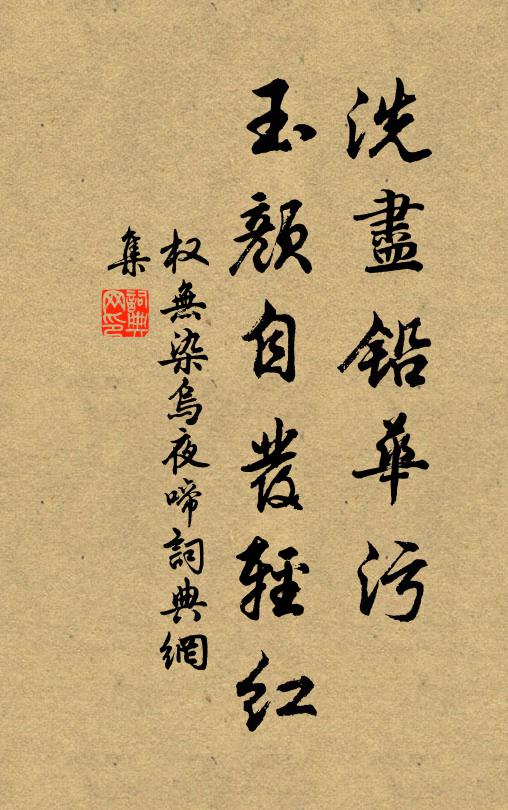 洗盡鉛華污
玉顏自發輕紅
权無染烏夜啼詞典網
集
詞典
网印